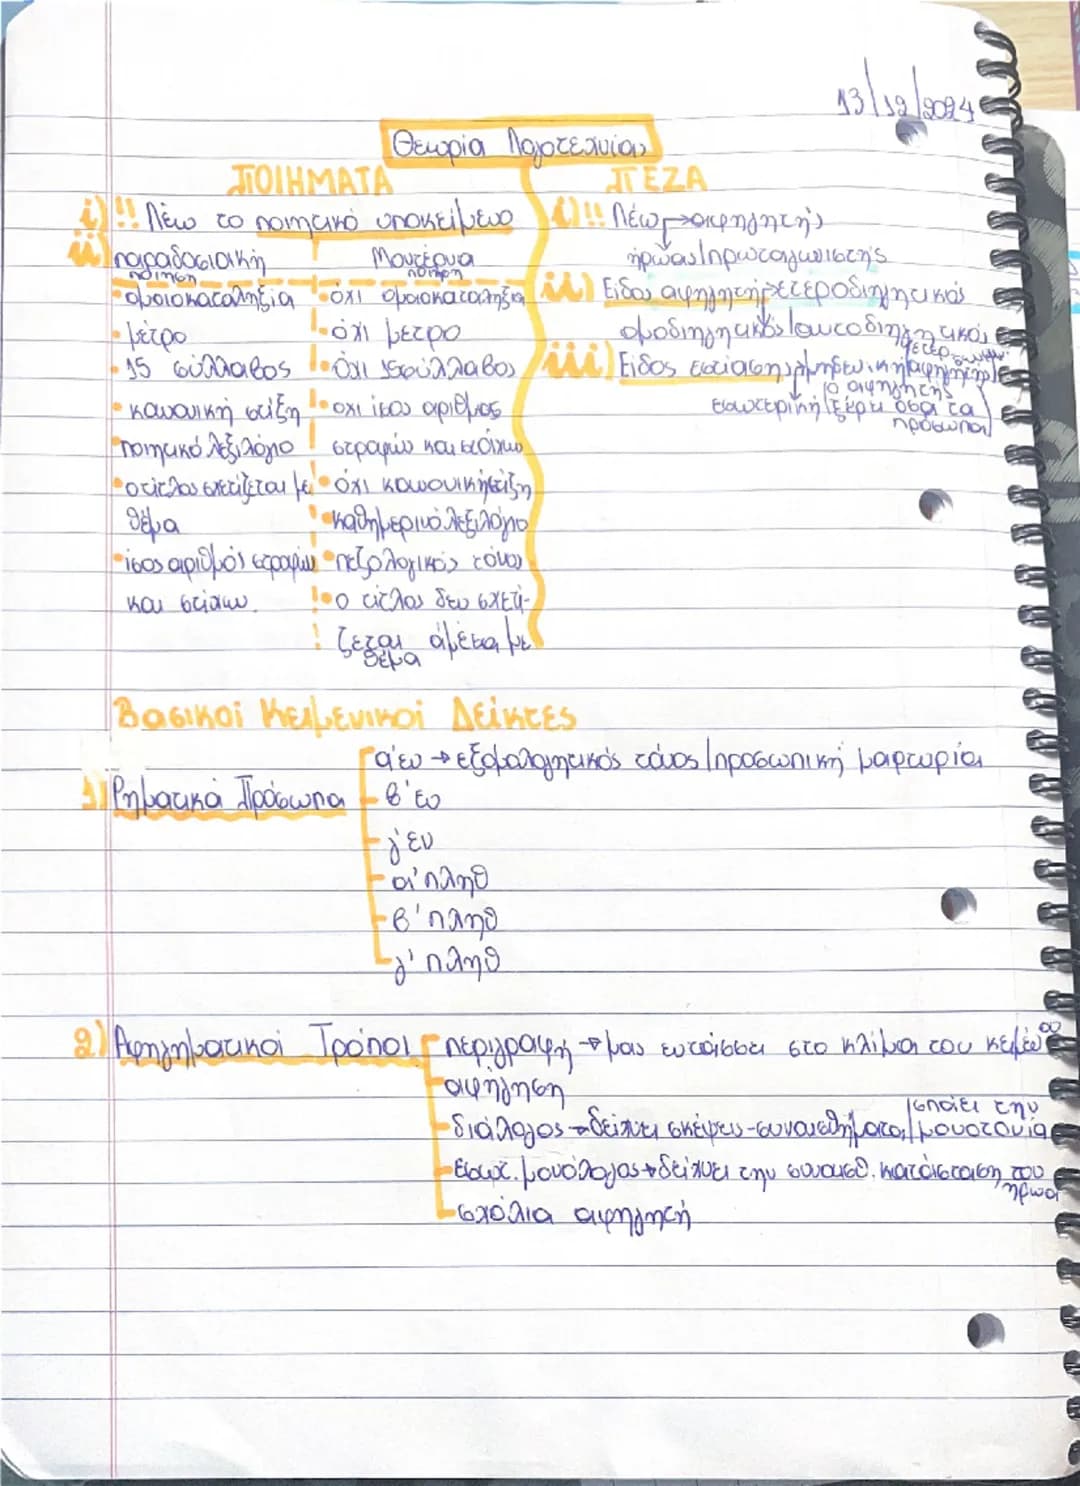 13/12/2024
Θεωρία Λογοτεχνίας
ΠΟΙΗΜΑΤΑ
i) !! Λέω το ποιητικό υποκείμενο
ii) παραδοσιακή ποίηση
Μοντέρνα ποίηση
• ομοιοκαταληξία
• όχι ομοιοκαταληξία
• μέτρο
• όχι μέτρο
• 15 σύλλαβος
• όχι 15σύλλαβος
• κανονική στίξη
• οχι ίσος αριθμος
ποιητικό λεξιλόγιο
στροφών και στίχων
• ο τίτλος σχετίζεται με
• όχι κανονική στίξη
θέμα
• καθημερινό λεξιλόγιο
• ίσος αριθμός στροφών
• πεζολογικός τόνος
και στίχων.
• ο τίτλος δεν σχετί-
ζεται άμεσα με
θέμα
ΠΕΖΑ
i) !! Λέω → αφηγητής
ήρωας/πρωταγωνιστής
ii) Είδος αφηγητή → ετεροδιηγητικός
ομοδιηγητικός/αυτοδιηγητικός
iii) Είδος εστίασης → μηδενική
ο αφηγητής
εσωτερική ξέρει όσα τα
πρόσωπα
Βασικοί Κειμενικοί Δείκτες
1) Ρηματικά Πρόσωπα
α'εν → εξομολογητικός τόνος/προσωπική μαρτυρία
β'εν
γ'εν
α'πληθ
β'πληθ
γ'πληθ
2) Αφηγηματικοί Τρόποι
περιγραφή → μας εντάσσει στο κλίμα του κειμένου
αφήγηση
διάλογος → δείχνει σκέψεις-συναισθήματα/σπάει την
μονοτονία
εσωτ. μονόλογος → δείχνει την συναισθ. κατάσταση του
ήρωα
σχόλια αφηγητή